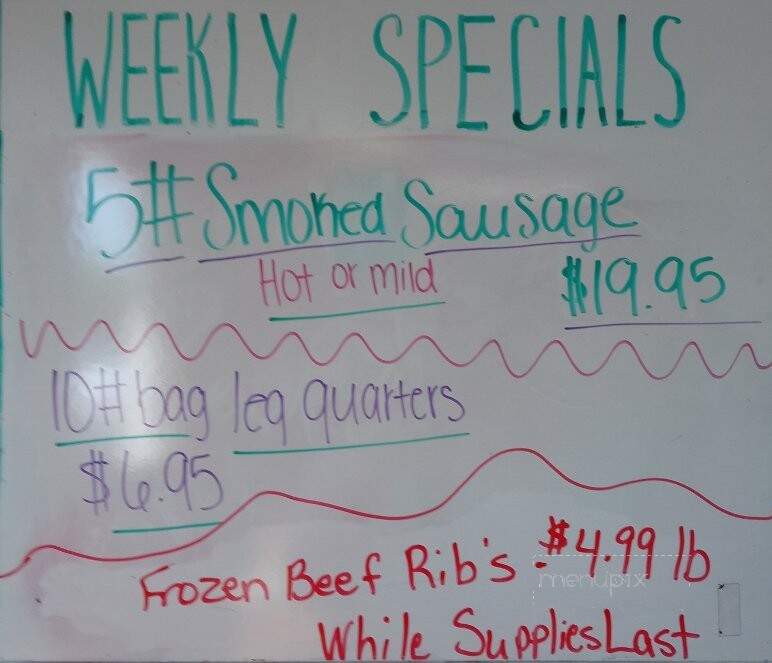 WEEKLY SPECIALS
5# Smoked Sausage
Hot or mild
$19.95
10# bag leg quarters
$6.95
Frozen Beef Rib's $4.99 lb
menupix
While Supplies Last